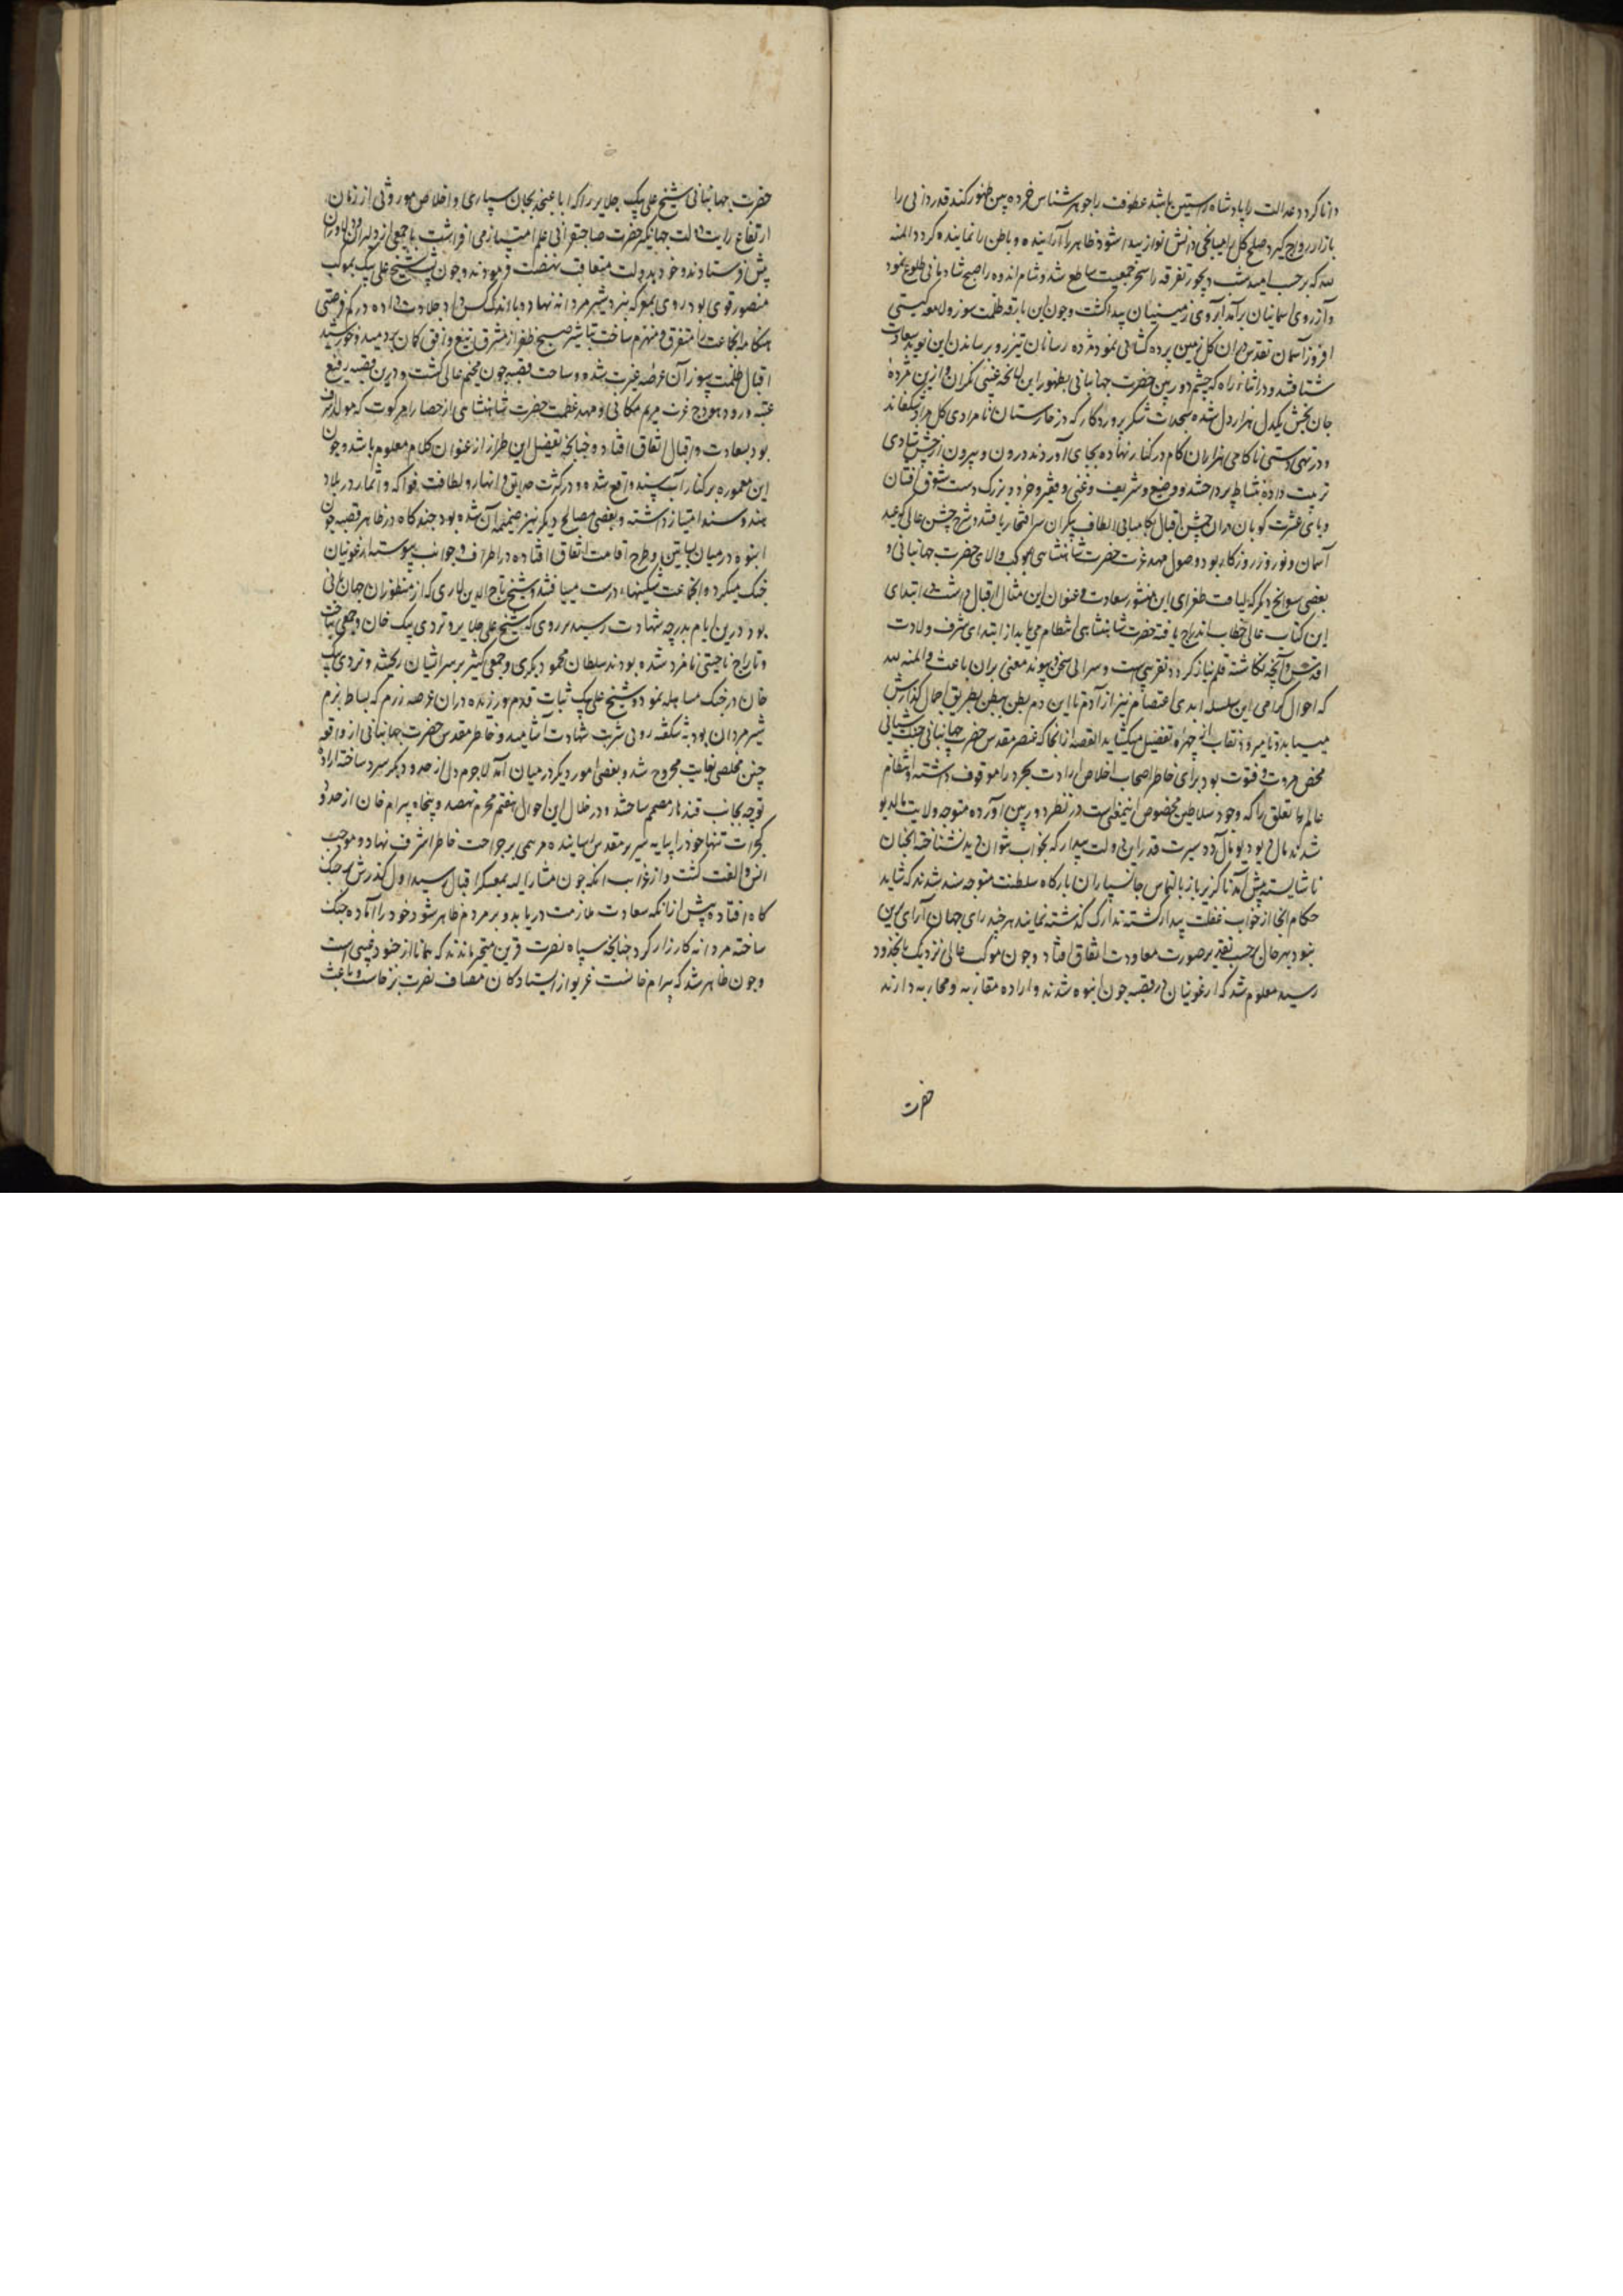 دانا کردد عدالت را پادشاه راستین باشد عطوفت را جوهرشناس خرده بین ظهور کند قدردانی را
بازار رواج گیرد صلح کل را میانجی دانش نواز پیدا شود ظاهر را آراینده و باطن را نماینده کردد المنه
لله که بر حسب امید شب دیجور تفرقه را سحر جمعیت ساطع شد و شام اندوه را صبح شادمانی طلوع نمود
و آرزوی آسمانیان برآمد آبروی زمینیان پیدا کشت و چون این بارقه ظلمت سوز و لامعه کیتی
افروز از آسمان تقدس بران کل زمین پرده کشائی نمود مژده رسانان تیزرو برساندن این نوید سعادت
شتافتند و در اثناء راه که چشم دوربین حضرت جهانبانی بظهور این لایحه غیبی نکران و ازین مژده
جان بخش یکدل هزار دل شده سجدات شکر پروردکار که در خارستان نامرادی کل مراد شکفاند
و در تهی دستی ناکامی هزاران کام در کنار نهاده بجای آوردند و درون و بیرون از جشن شادی
ترتیب داده بنشاط پرداختند و وضیع و شریف و غنی و فقیر و خرد و بزرک دست شوق افشان
و پای عشرت کوبان دران جشن اقبال بکامیابی الطاف بیکران سرافتخار یافتند و شرح جشن عالی که عید
آسمان و نوروز روزکار بود و وصول مهد عزت حضرت شاهنشاهی بموکب والای حضرت جهانبانی و
بعضی سوانح دیکر که لیاقت طغرای این منشور سعادت و عنوان این مثال اقبال داشت در ابتدای
این کتاب عالی خطاب اندراج یافته حضرت شاهنشاهی انتظام می یابد از ابتدای شرف ولادت
اقدس و آنچه نکاشته قلم نیاز کردد تقریبی است و سررائی سخن و پیوند معنی بران باعث و المنه لله
که احوال کرامی این سلسله ابدی اعتصام نیز از آدم تا این دم بطن ببطن بطریق اجمال کذارش
می یابد و تا میرود نقاب از چهره تفصیل میکشاید القصه ازانجا که عنصر مقدس حضرت جهانبانی جنت آشیانی
محض مروت و فتوت بود برای خاطر اصحاب اخلاص ارادت تجرد را موقوف داشته انتظام
عالم تعلق را که وجود سلاطین مخصوص اینمعنی است در نظر دوربین آورده متوجه ولایت مالدیو
شدند مالدیو بدمآل دد سیرت قدر این دولت بیدار که بخواب نتوان دید نشناخته انجنان
ناشایسته پیش آمد ناکزیر باز بالتماس جانسپاران بارکاه سلطنت متوجه سند شدند که شاید
حکام انجا از خواب غفلت بیدار کشته تدارک کذشته نمایند هر چند رای جهان آرای برین
نبود بهر حال بحسب تقدیر صورت معاودت اتفاق افتاد و چون موکب عالی نزدیک بانحدود
رسید معلوم شد که ارغونیان در قصبه جون انبوه شدند و اراده مقاربه و محاربه دارند
حضرت
حضرت جهانبانی شیخ علی بیک جلایر را که ابا عن جد بجان سپاری و اخلاص موروثی از زمان
ارتفاع رایت ایالت جهانکیر حضرت صاحبقرانی علم امتیاز می افراشت با جمعی از دلیران و دلاوران
پیش فرستادند و خود بدولت متعاقب نهضت فرمودند و چون پشت شیخ علی بیک بموکب
منصور قوی بود روی بمعرکه نبرد شیرمردانه نهاد و با اندک کس داد جلادت داده در کم فرصتی
هنکامه انجماعت را متفرق و منهزم ساخت تباشیر صبح ظفر از مشرق تیغ و افق کمان بردمید و خورشید
اقبال ظلمت سوز آن عرصه عبرت شد و ساحت قصبه جون مخیم عالی کشت و درین قصبه رفیع
عتبه ورود هودج عزت مریم مکانی و مهد عظمت حضرت شاهنشاهی از حصار امرکوت که مولد شرف
بود بسعادت و اقبال اتفاق افتاد و چنانچه تفصیل این طراز از عنوان کلام معلوم باشد و چون
این معموره بر کنار آب سند واقع شده و در کثرت حدایق و انهار و لطافت فواکه و اثمار در بلاد
هند و سند امتیاز داشته و بعضی مصالح دیکر نیز ضمیمه آن شده بود چند کاه در ظاهر قصبه جون
انبوه در میان بساتین طرح اقامت اتفاق افتاده در اطراف و جوانب پیوسته ارغونیان
جنک میکرد و انجماعت شکستها درست مییافتند و شیخ تاج الدین لاری که از منظوران جهانبانی
بود درین ایام بدرجه شهادت رسید بر روی که شیخ علی جلایر و تردی بیک خان و جمعی بتاخت
و تاراج ناحیتی نامزد شده بودند سلطان محمود بکری و جمعی کثیر بر سر ایشان ریخته و تردی بیک
خان در جنک مساهله نمود و شیخ علی بیک ثبات قدم ورزیده دران عرصه رزم که بساط بزم
شیرمردان بود بشکفته روئی شربت شهادت آشامید و خاطر مقدس حضرت جهانبانی از واقعه
چنین مخلصی بغایت مجروح شد و بعضی امور دیکر در میان آمد لاجرم دل از حدود بکر سرد ساخته اراده
توجه بجانب قندهار مصمم ساختند و در خلال این احوال هفتم محرم نهصد و پنجاه بیرام خان از حدود
کجرات تنها خود را بپایه سریر مقدس رسانیده مرهمی بر جراحت خاطر اشرف نهاد و موجب
انس و الفت کشت و از غرایب آنکه چون مشارالیه بمعسکر اقبال رسید اول کذرش بر جنک
کاه افتاده پیش ازانکه سعادت ملازمت دریابد و بر مردم ظاهر شود خود را آماده جنک
ساخته مردانه کارزار کرد چنانچه سپاه نصرت قرین متحیر ماندند که همانا از جنود غیبی است
و چون ظاهر شد که بیرام خانست غریو از ایستادکان مصاف نصرت برخاست و باعث